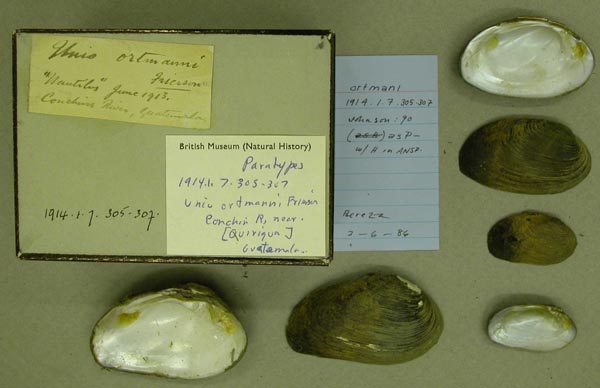 Unio ortmanni
Frierson
"Nautilus" June 1913.
Conchins River, Guatemala
British Museum (Natural History)
Paratypes
1914.1.7.305-307
Unio ortmanni, Frierson
Conchin R, near.
[Quirigua]
Guatemala.
1914.1.7.305-307.
ortmani
1914.1.7.305-307
Johnson: 90
as P-
w/ H in ANSP.
Bereza
3-6-86